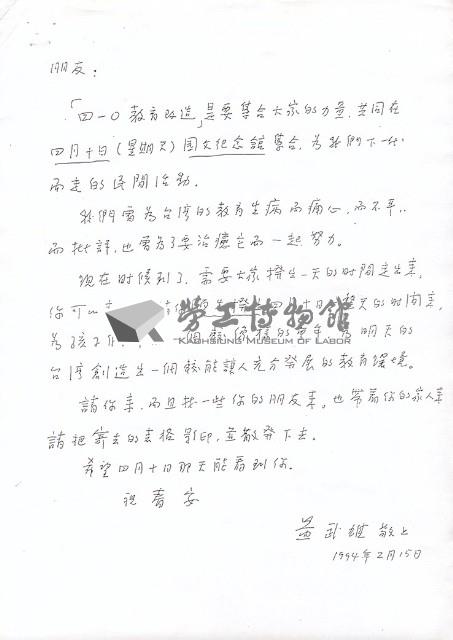 朋友：
「四一〇教育改造」是要集合大家的力量，共同在
四月十日（星期天）国父纪念馆集合，為我們下一代
而走的民間活動。
我們曾為台湾的教育生病而痛心，而不平，
而批評，也曾為了要治療它而一起努力。
现在时候到了，需要大家撥出一天的时間走出来，
你可以 四月十日 整天的时間来，
為孩子 個 為明天的
台湾創造出一個較能讓人充分發展的教育環境。
請你来，而且找一些你的朋友来。也带着你的家人来
請把寄去的表格影印，並散發下去。
希望四月十日那天能看到你。
祝 春安
黃武雄 敬上
1994年2月15日
勞工博物館
KAOHSIUNG MUSEUM OF LABOR